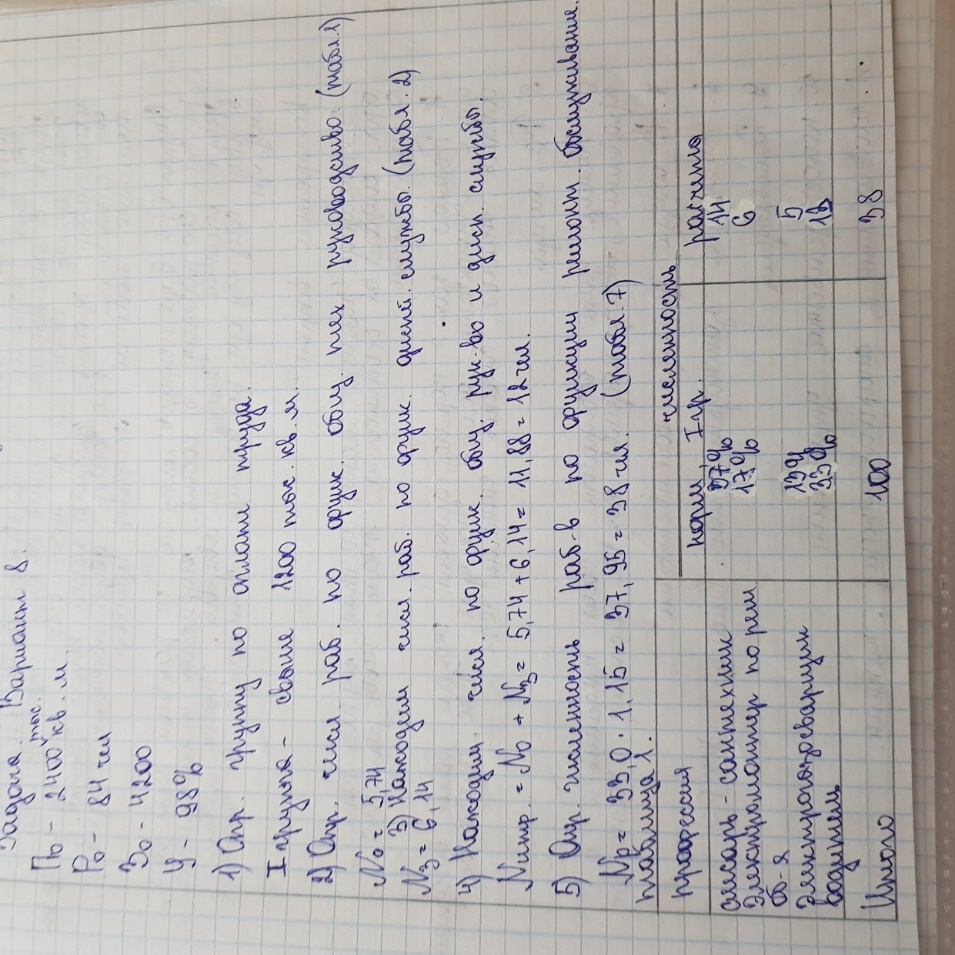 Задача. Вариант 8.
По - 2400 тыс. кв. м.
Ро - 84 чел
Зо - 4200
У - 98%
1) Опр. группу по оплате труда.
I группа - свыше 1200 тыс. кв. м.
2) Опр. числ. раб. по функ. общ. тех руководство. (табл. 1)
No = 5,74
3) Находим числ. раб. по функ. диспет. службы. (табл. 2)
Nз = 6,14
4) Находим числ. по функ. общ. рук-во и дисп. службы.
Nитр. = No + Nз = 5,74 + 6,14 = 11,88 = 12 чел.
5) Опр. численность раб-в по функции ремонт. обслуживание.
Nр = 33,0 · 1,15 = 37,95 = 38 чел. (табл. 7)
таблица 1.
профессия численность
норм I гр. расчетно
слесарь - сантехник 37% 14
Электромонтер по рем 17% 6
об-я
Электрогазосварщик 13% 5
водитель 33% 13
Итого 100 38